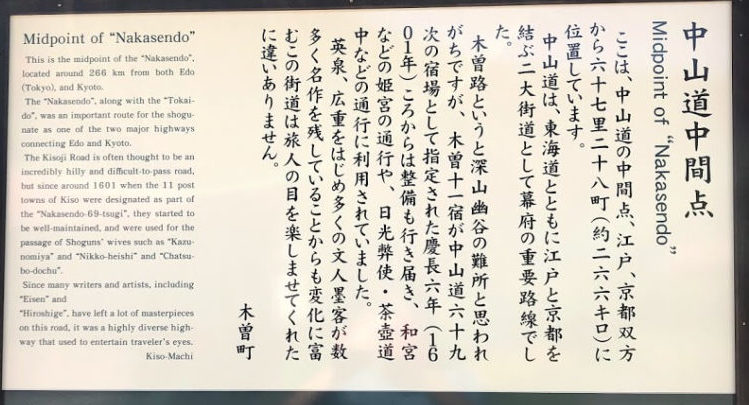 Midpoint of “Nakasendo”
This is the midpoint of the “Nakasendo”,
located around 266 km from both Edo
(Tokyo), and Kyoto.
The “Nakasendo”, along with the “Tokai-
do”, was an important route for the shogu-
nate as one of the two major highways
connecting Edo and Kyoto.
The Kisoji Road is often thought to be an
incredibly hilly and difficult-to-pass road,
but since around 1601 when the 11 post
towns of Kiso were designated as part of
the “Nakasendo-69-tsugi”, they started to
be well-maintained, and were used for the
passage of Shoguns' wives such as “Kazu-
nomiya” and “Nikko-heishi” and “Chatsu-
bo-dochu”.
Since many writers and artists, including
“Eisen” and
“Hiroshige”, have left a lot of masterpieces
on this road, it was a highly diverse high-
way that used to entertain traveler's eyes.
Kiso-Machi
中山道中間点
Midpoint of “Nakasendo”
ここは、中山道の中間点、江戸、京都双方
から六十七里二十八町（約二六六キロ）に
位置しています。
中山道は、東海道とともに江戸と京都を
結ぶ二大街道として幕府の重要路線でし
た。
木曽路というと深山幽谷の難所と思われ
がちですが、木曽十一宿が中山道六十九
次の宿場として指定された慶長六年（16
01年）ころからは整備も行き届き、和宮
などの姫宮の通行や、日光弊使・茶壺道
中などの通行に利用されていました。
英泉、広重をはじめ多くの文人墨客が数
多く名作を残していることからも変化に富
むこの街道は旅人の目を楽しませてくれた
に違いありません。
木曽町